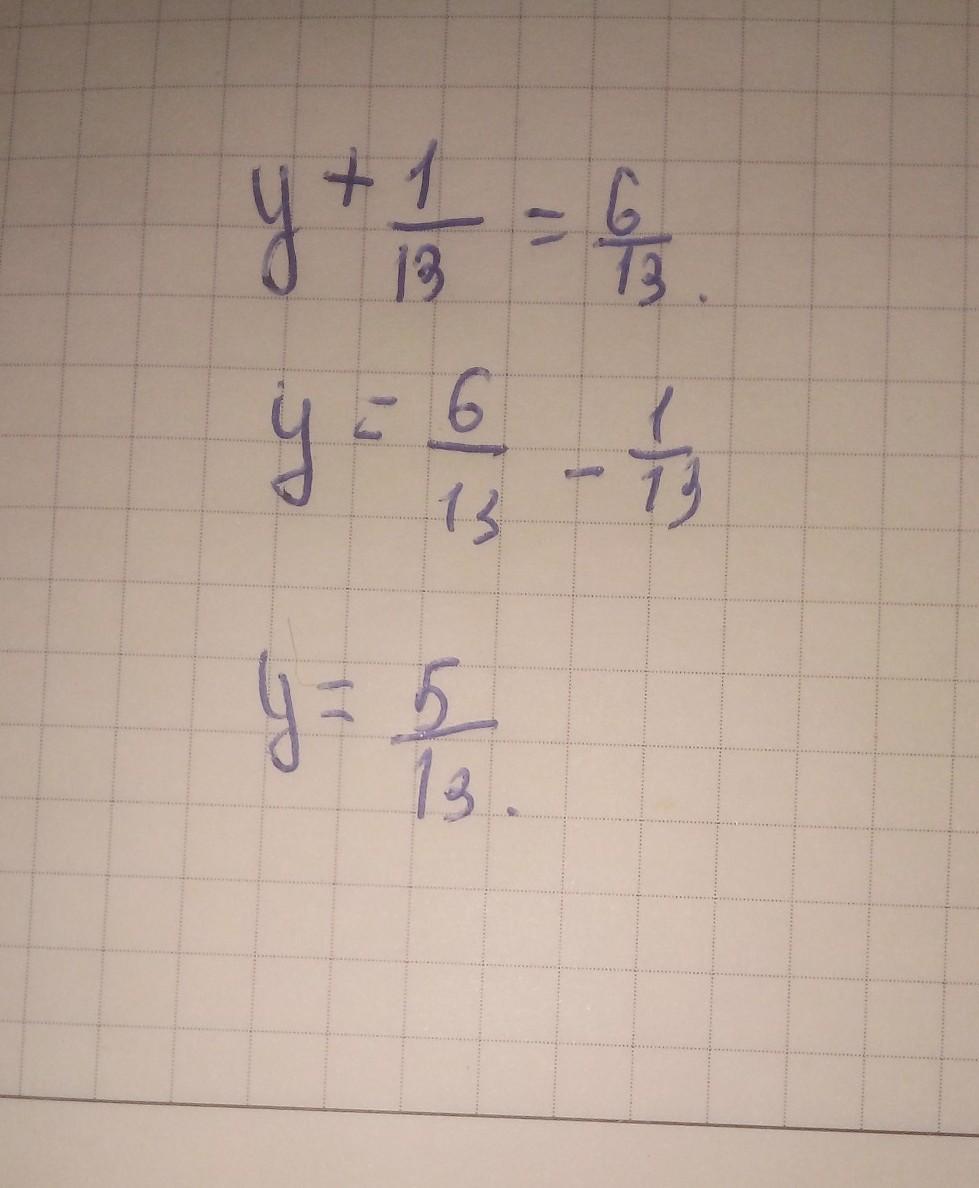 y + 1/13 = 6/13.
y = 6/13 - 1/13
y = 5/13.